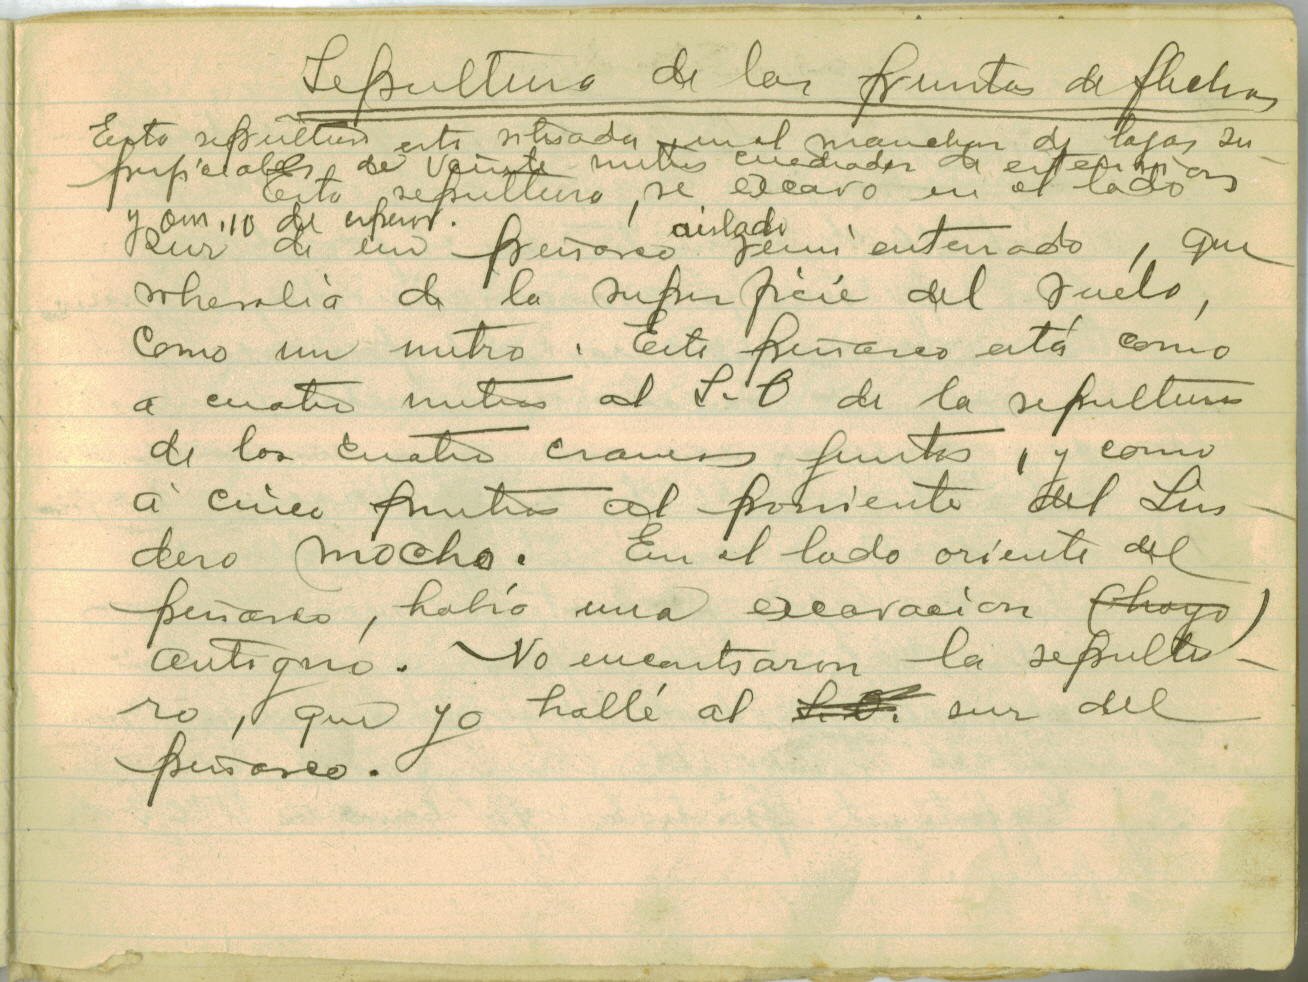 Sepultura de las puntas de flechas
Esta sepultura está situada en el manchon de lajas su-
perficiales, de veinte metros cuadrados de extension
y 0m.10 de espesor.
Esta sepultura, se excavo en el lado
sur de un peñasco aislado semi enterrado, que
sobresalia de la superficie del suelo,
como un metro. Este peñasco está como
a cuatro metros al S-O de la sepultura
de los cuatro craneos juntos, y como
á cinco metros al poniente del Lin-
dero mocho. En el lado oriente del
peñasco, habia una excavacion (hoyo)
antiguo. No encontraron la sepultu-
ra, que yo hallé al S.O. sur del
peñasco.